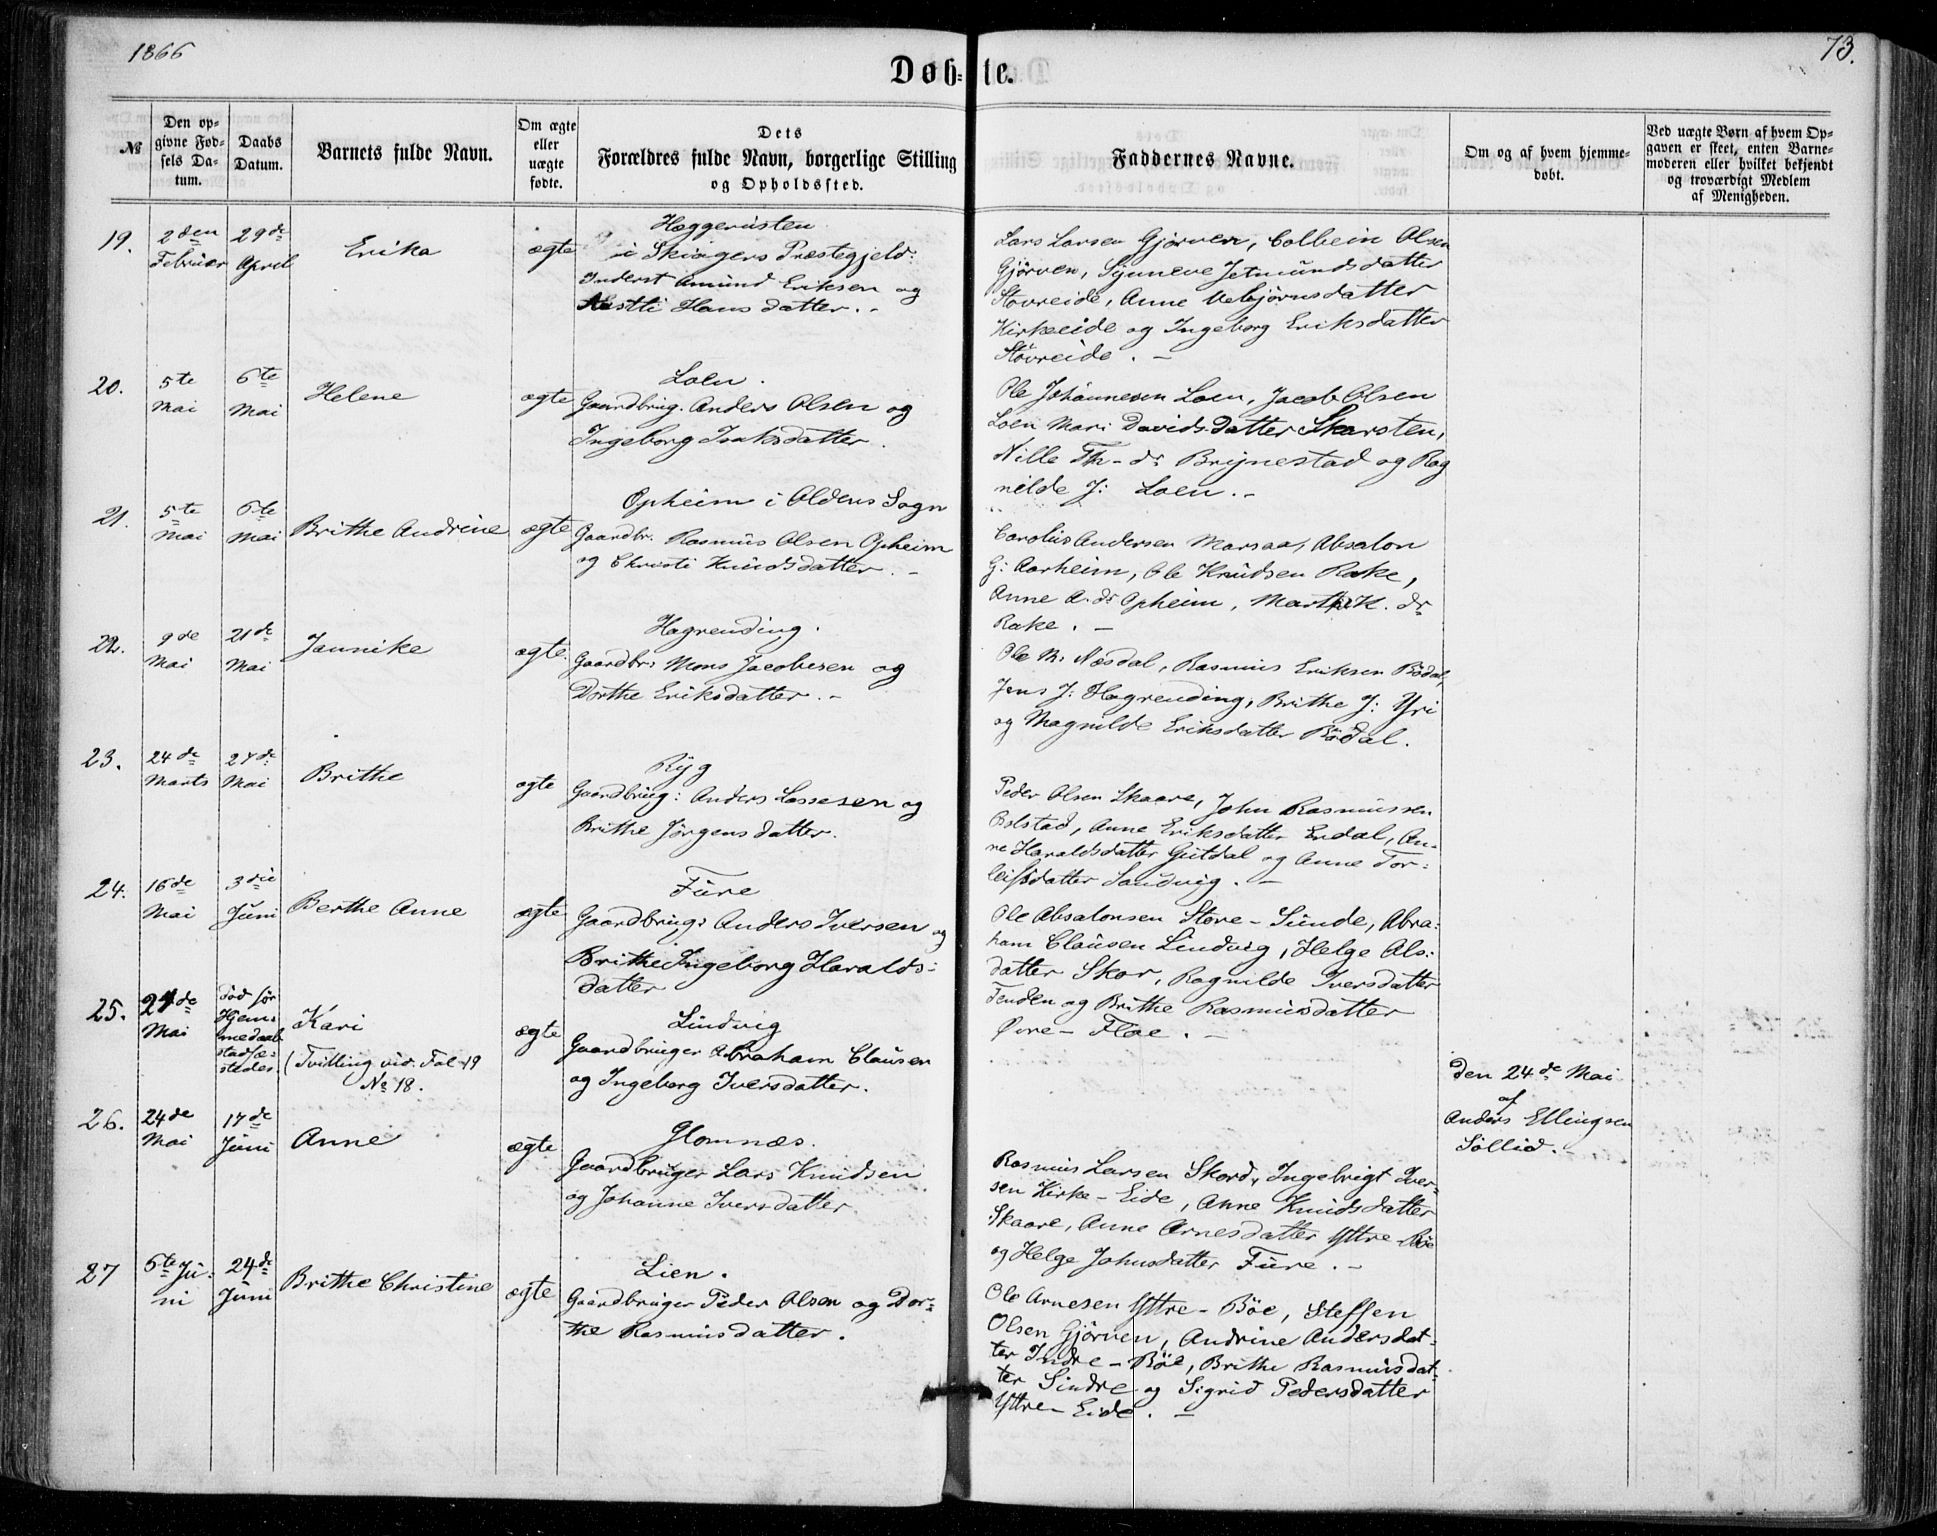 1866
73.
Døb-te.
№
Den op-
givne Fød-
sels Da-
tum.
Daabs
Datum.
Barnets fulde Navn.
Om ægte
eller
uægte
fødte.
Dets
Forældres fulde Navn, borgerlige Stilling
og Opholdssted.
Faddernes Navne.
Om og af hvem hjemme-
døbt.
Ved uægte Børn af hvem Op-
gaven er skeet, enten Barne-
moderen eller hvilket bekjendt
og troværdigt Medlem
af Menigheden.
19.
2den
Februar
29de
April
Erika
ægte
Heggeruisten
i Skiagers Præstegjeld.
Inderst Amund Eriksen og
Hansdatter.
Lars Larsen Gjørven, Colbein Olsen
Gjørven, Synneve Jetmundsdatter
Støvreide, Anne Vebjørnsdatter
Kirkeeide og Ingeborg Eriksdatter
Støvreide. -
20.
5te
Mai
6te
Mai
Helene
ægte
Loen.
Gaardbrug. Anders Olsen og
Ingeborg Isaksdatter.
Ole Johannesen Loen, Jacob Olsen
Loen Mari Davids-Datter Skarsten,
Nille Th- dr Brynestad og Rag
nilde J: Loen. -
21.
5te
Mai
6te
Mai
Brithe Andrine
ægte
Opheim i Oldens Sogn
Gaardbr. Rasmus Olsen Opheim
og Christi Knudsdatter. -
Carolus Andersen Marsaa, Absalon
G: Aarheim, Ole Knudsen Rake,
Anne A. dr Opheim, Marthe K. dr
Rake. -
22.
9de
Mai
21de
Mai
Jannike
ægte.
Hagrending.
Gaardbr: Mons Jacobsen og
Dorthe Eriksdatter. -
Ole M: Næsdal, Rasmus Eriksen Bødal,
Jens J: Hagrending, Brithe J: Yri
og Magnilde Eriksdatter Bødal.
23.
24de
Marts
27de
Mai
Brithe
ægte
Ryg
Gaardbrug: Anders Lassesen og
Brithe Jørgensdatter.
Peder Olsen Skaare, John Rasmussen
Bolstad, Anne Eriksdatter Erdal, An-
ne Haraldsdatter Gutdal og Anne Tor:
leifsdatter Sandvig. -
24.
16de
Mai
3die
Juni
Berthe Anne
ægte
Fure
Gaardbrug: Anders Iversen og
Brithe Ingeborg Haralds:
datter
Ole Absalonsen Store-Sunde, Abra:
ham Clausen Lindvig, Helge Als:
datter Skor, Ragnilde Iversdatter
Tenden og Brithe Rasmusdatter
Øvre-Floe. -
25.
24de
Mai
Død før
Hjem-
medaab
stadfæ-
stedes.
Kari
(Tvilling vid. Fol 19
№ 18.
ægte
Lindvig
Gaardbruger Abraham Clausen
og Ingeborg Iversdatter.
Den 24de Mai
af
Anders Ellingsen
Sollid.
26.
24de
Mai
17de
Juni
Anne
ægte
Glomnæs.
Gaardbruger Lars Knudsen
og Johanne Iversdatter
Rasmus Larsen Skord, Ingebrigt Iver-
sen Kirke-Eide, Anne Knudsdatter
Skaare, Anne Arnesdatter Yttre-Bøe
og Helge Johnsdatter Fure. -
27
5te Ju-
ni
24de
Juni
Brithe Christine
ægte
Lien.
Gaardbruger Peder Olsen og Dor-
the Rasmusdatter.
Ole Arnesen Yttre-Bøe, Steffen
Olsen Gjørven, Andrine Andersdat-
ter Indre-Bøe, Brithe Rasmusdat-
ter Sindre og Sigrid Pedersdatter
Yttre-Eide. -